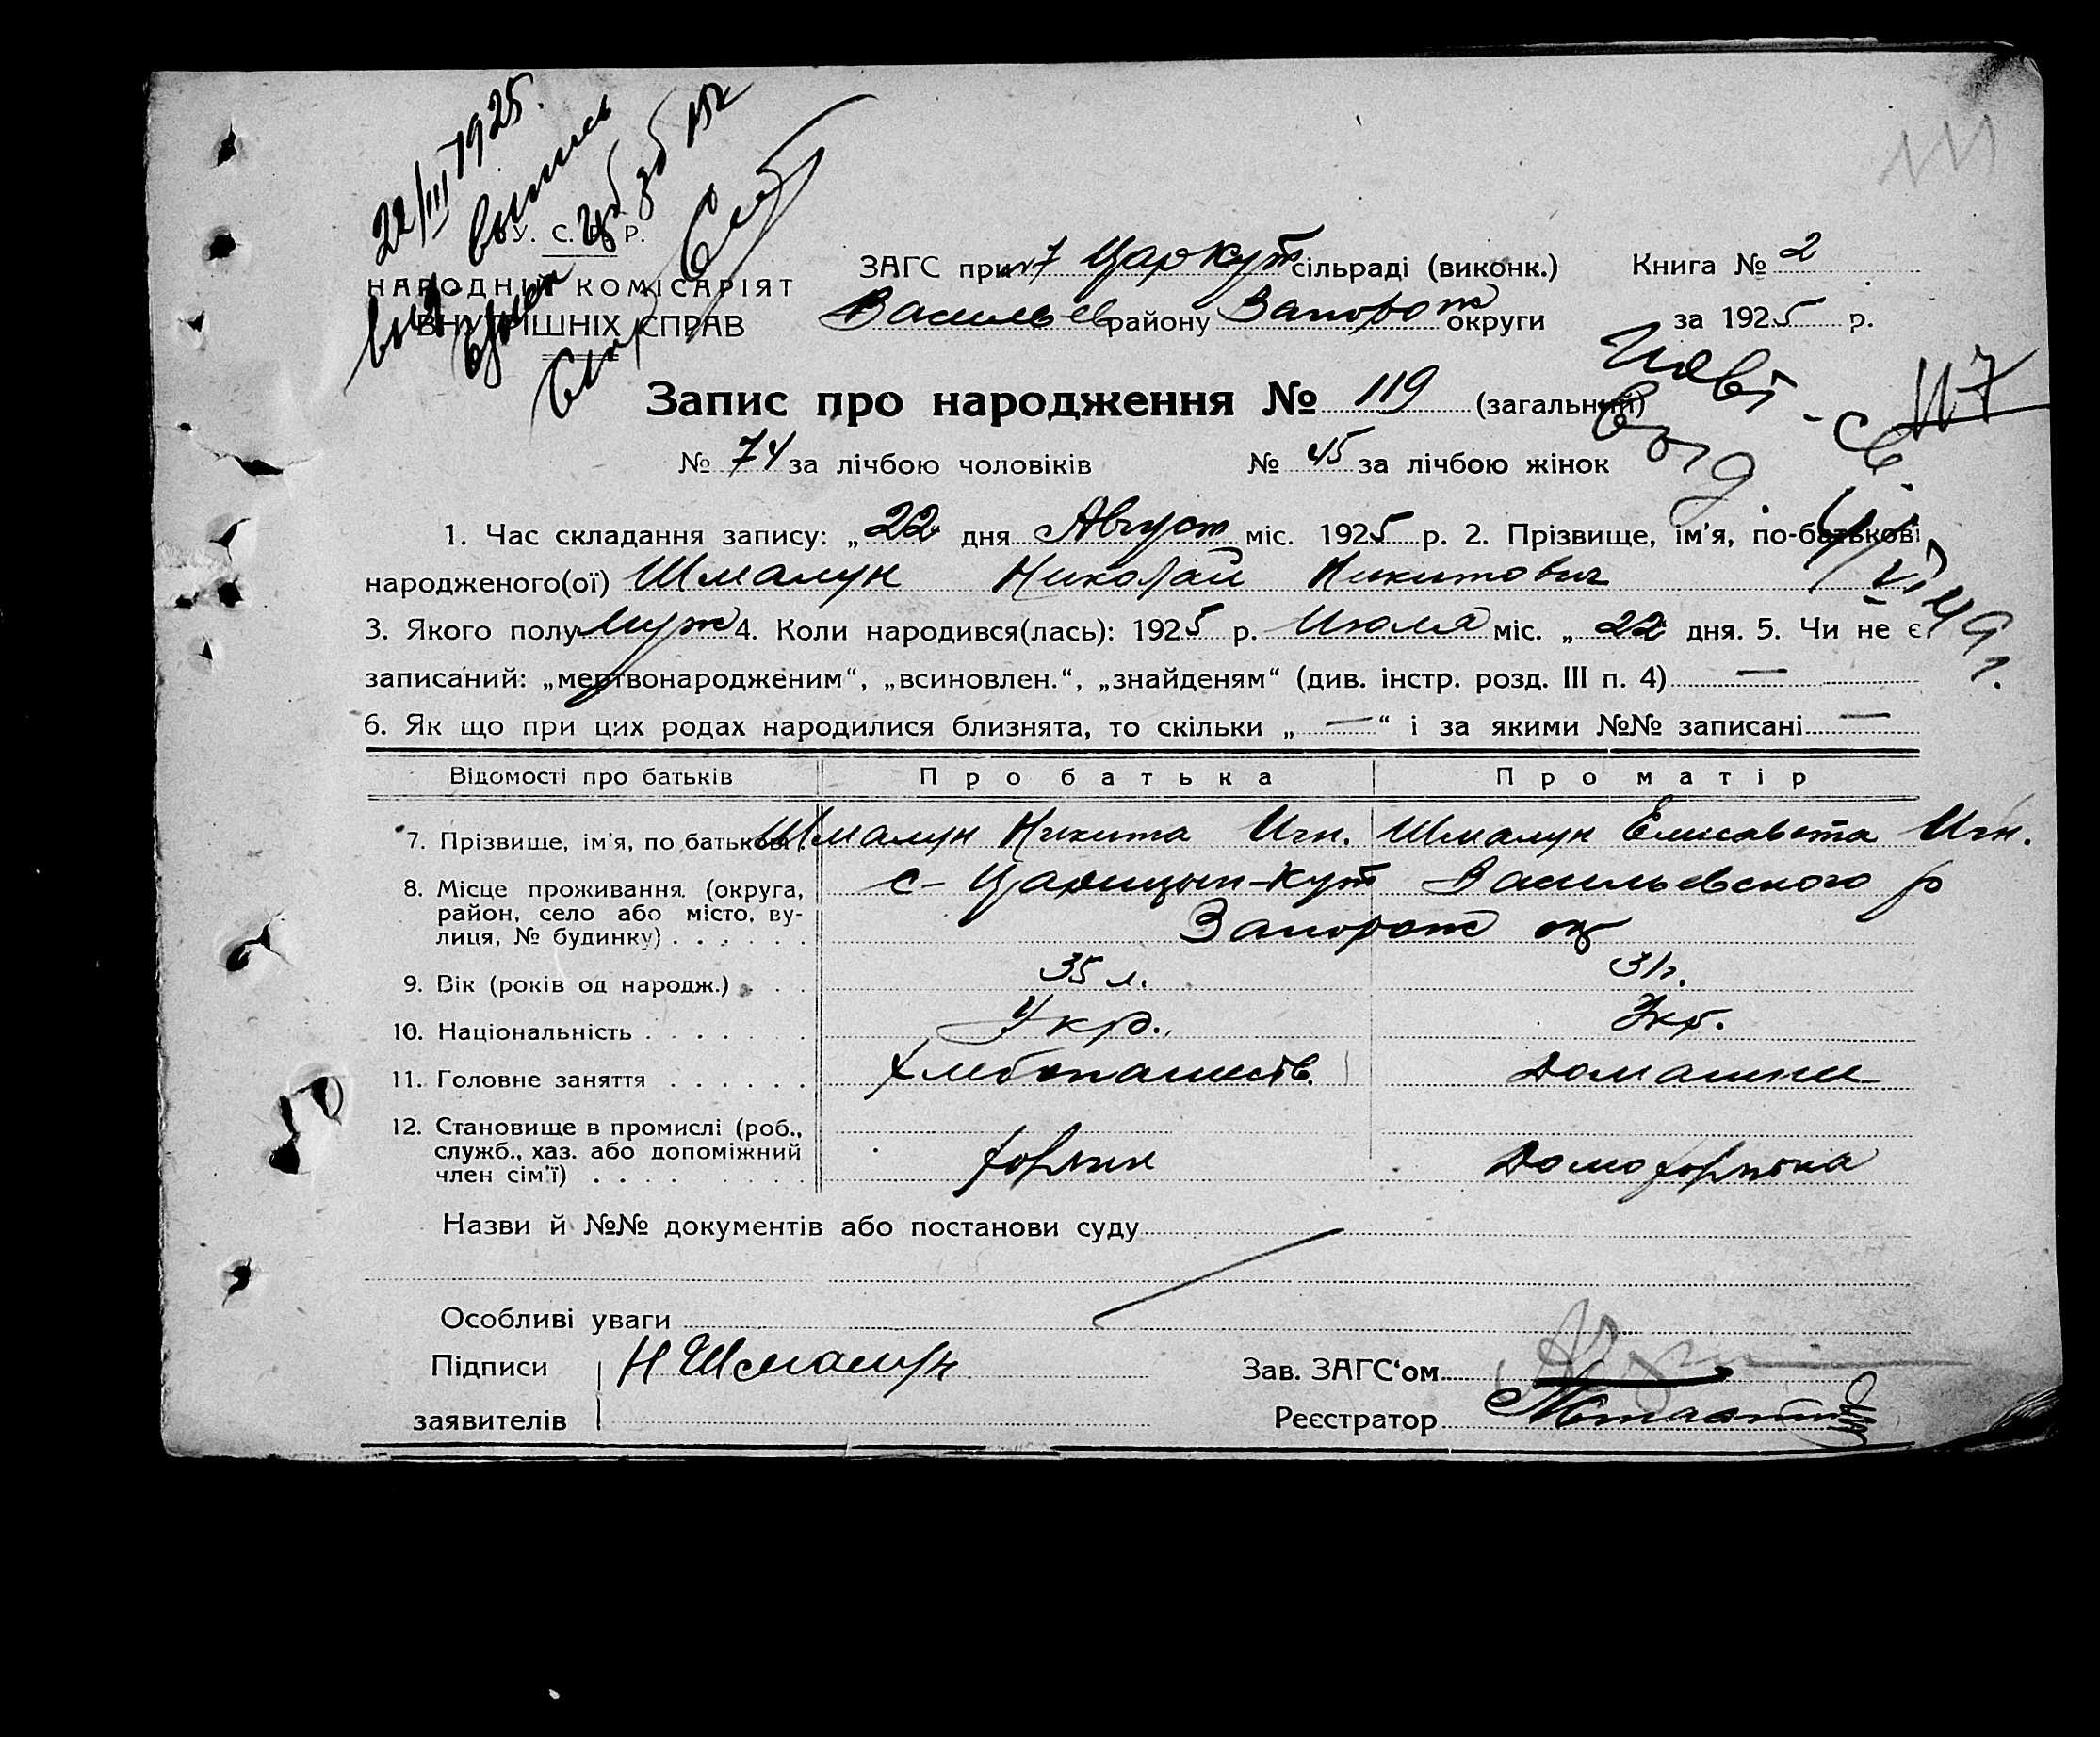 22/III 1925.
выпись
У. С. Р. Р.
НАРОДНІЙ КОМІСАРІЯТ
ВНУТРІШНІХ СПРАВ
ЗАГС при Царкут сільраді (виконк.) Книга № 2
Васильев району Запорож округи за 1925 р.
Запис про народження № 119 (загальний)
117
№ 74 за лічбою чоловіків № 45 за лічбою жінок
1. Час складання запису: „22 дня Август міс. 1925 р. 2. Прізвище, ім'я, по-батькові
народженого(ої) Шмалун Николай Никитович
3. Якого полу Муж 4. Коли народився(лась): 1925 р. Июля міс. „22 дня. 5. Чи не є
записаний: „мертвонародженим“, „всиновлен.“, „знайденям“ (див. інстр. розд. III п. 4) —
6. Як що при цих родах народилися близнята, то скільки „—“ і за якими №№ записані —
Відомості про батьків Про батька Про матір
7. Прізвище, ім'я, по батькові. Шмалун Никита Игн. Шмалун Елисавета Игн.
8. Місце проживання (округа, с- Царицын-Кут Васильевского р
район, село або місто, ву-
лиця, № будинку) . . . . . . Запорож ок
9. Вік (років од народж.) . . . 35 л. 31 г.
10. Національність . . . . . . . Укр. Укр.
11. Головне заняття . . . . . . Хлебопашеств. Домашнее
12. Становище в промислі (роб.,
служб., хаз. або допоміжний
член сім'ї) . . . . . . . . .
Назви й №№ документів або постанови суду
Особливі уваги
Підписи Н Шмалун Зав. ЗАГС'ом
заявителів Реєстратор